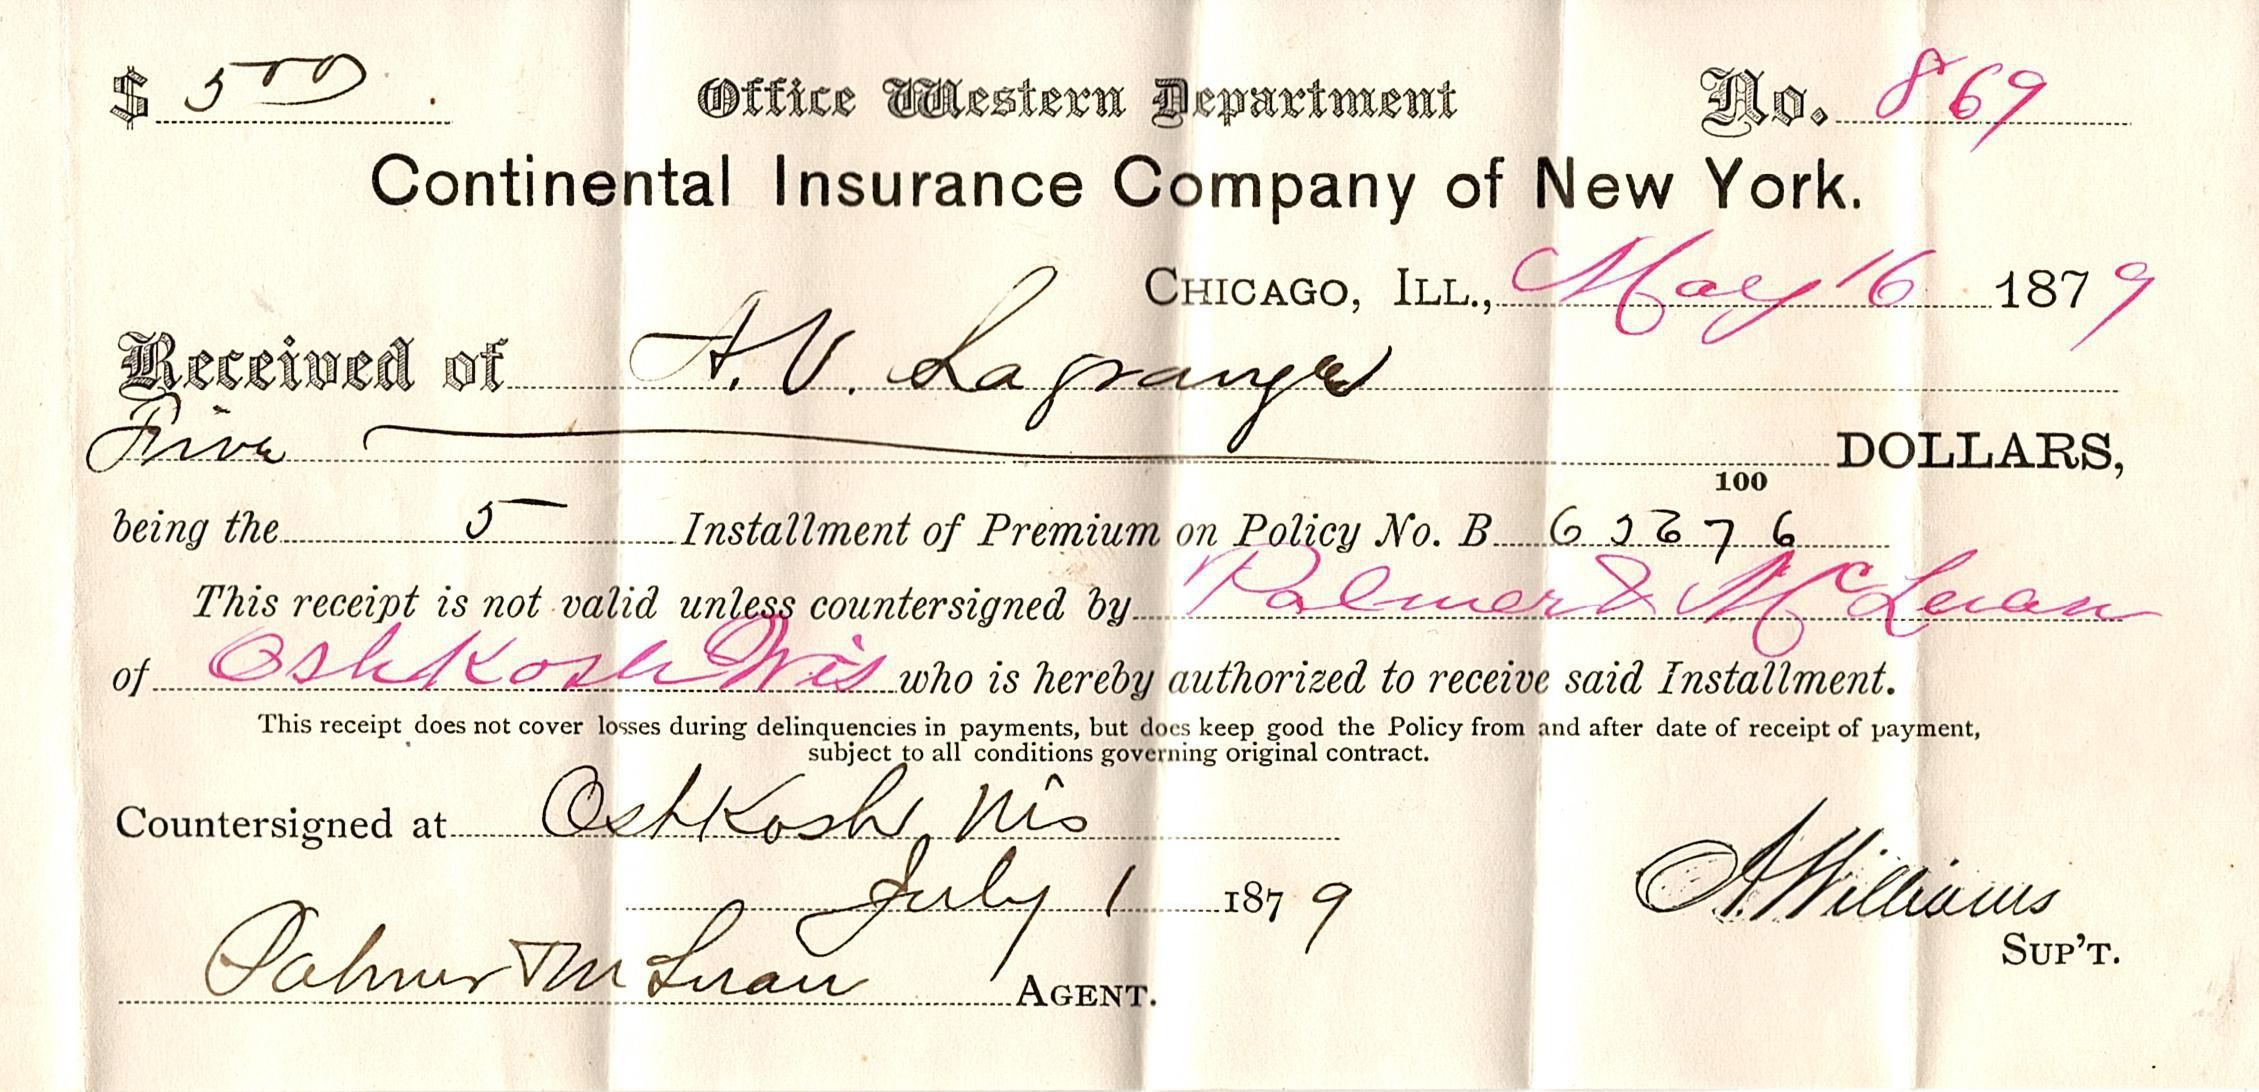 $ 5 00 Office Western Department No. 869
Continental Insurance Company of New York.
CHICAGO, ILL., May 16 1879
Received of A. V. Lagrange
Five DOLLARS,
100
being the 5 Installment of Premium on Policy No. B 65676
This receipt is not valid unless countersigned by Palmer & McLean
of Oshkosh Wis who is hereby authorized to receive said Installment.
This receipt does not cover losses during delinquencies in payments, but does keep good the Policy from and after date of receipt of payment,
subject to all conditions governing original contract.
Countersigned at Oshkosh, Wis
July 1 1879
A. Williams
SUP'T.
Palmer & McLean AGENT.